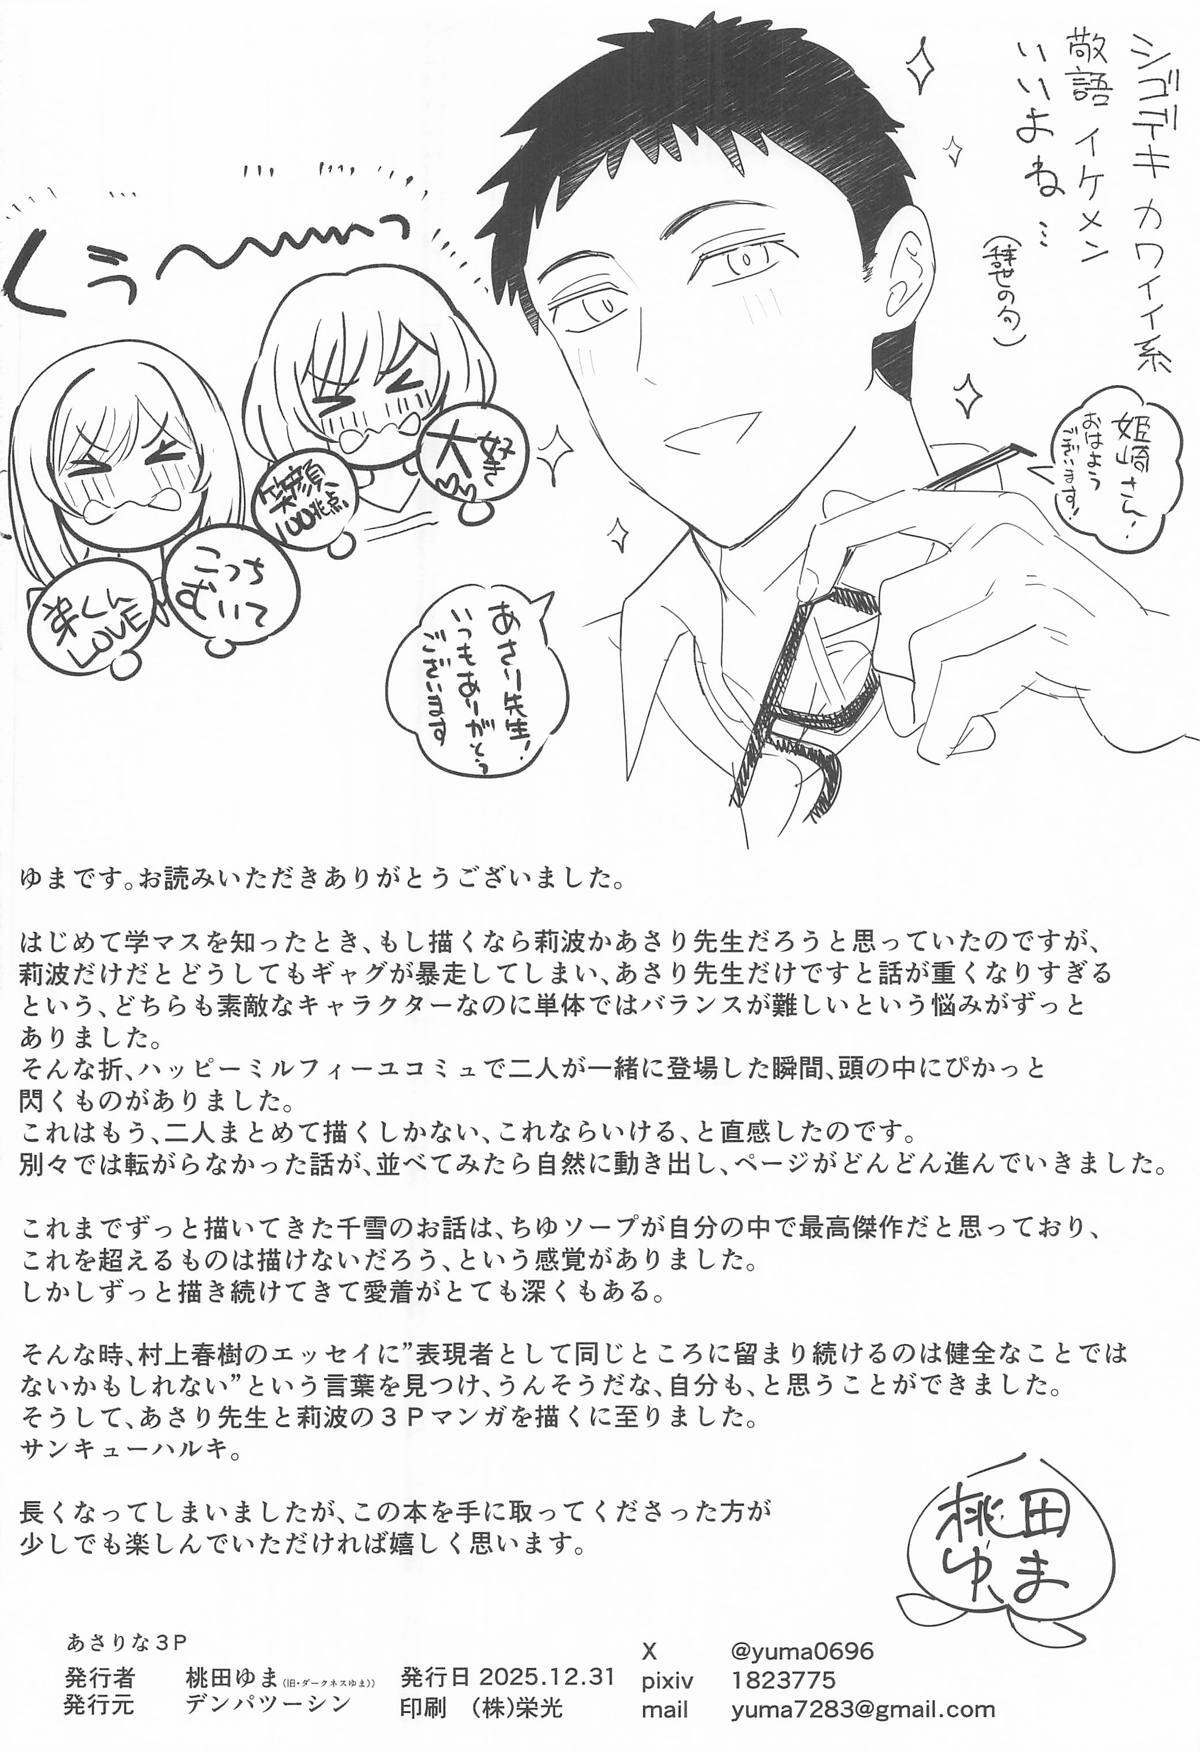 シゴデキ カワイイ系
敬語 イケメン
いいよね…
(辞世の句)
姫崎さん!
おはよう
ございます!
くぅ〜っ
大好き
笑顔
100兆点
こっち
むいて
弟くん
LOVE
あさり先生!
いつもありがとう
ございます
ゆまです。お読みいただきありがとうございました。
はじめて学マスを知ったとき、もし描くなら莉波かあさり先生だろうと思っていたのですが、
莉波だけだとどうしてもギャグが暴走してしまい、あさり先生だけですと話が重くなりすぎる
という、どちらも素敵なキャラクターなのに単体ではバランスが難しいという悩みがずっと
ありました。
そんな折、ハッピーミルフィーユコミュで二人が一緒に登場した瞬間、頭の中にぴかっと
閃くものがありました。
これはもう、二人まとめて描くしかない、これならいける、と直感したのです。
別々では転がらなかった話が、並べてみたら自然に動き出し、ページがどんどん進んでいきました。
これまでずっと描いてきた千雪のお話は、ちゆソープが自分の中で最高傑作だと思っており、
これを超えるものは描けないだろう、という感覚がありました。
しかしずっと描き続けてきて愛着がとても深くもある。
そんな時、村上春樹のエッセイに”表現者として同じところに留まり続けるのは健全なことでは
ないかもしれない”という言葉を見つけ、うんそうだな、自分も、と思うことができました。
そうして、あさり先生と莉波の3Pマンガを描くに至りました。
サンキューハルキ。
長くなってしまいましたが、この本を手に取ってくださった方が
少しでも楽しんでいただければ嬉しく思います。
桃田
ゆま
あさりな3P
発行者 桃田ゆま(旧・ダークネスゆま))
発行元 デンパツーシン
発行日 2025.12.31
印刷 (株)栄光
X @yuma0696
pixiv 1823775
mail yuma7283@gmail.com